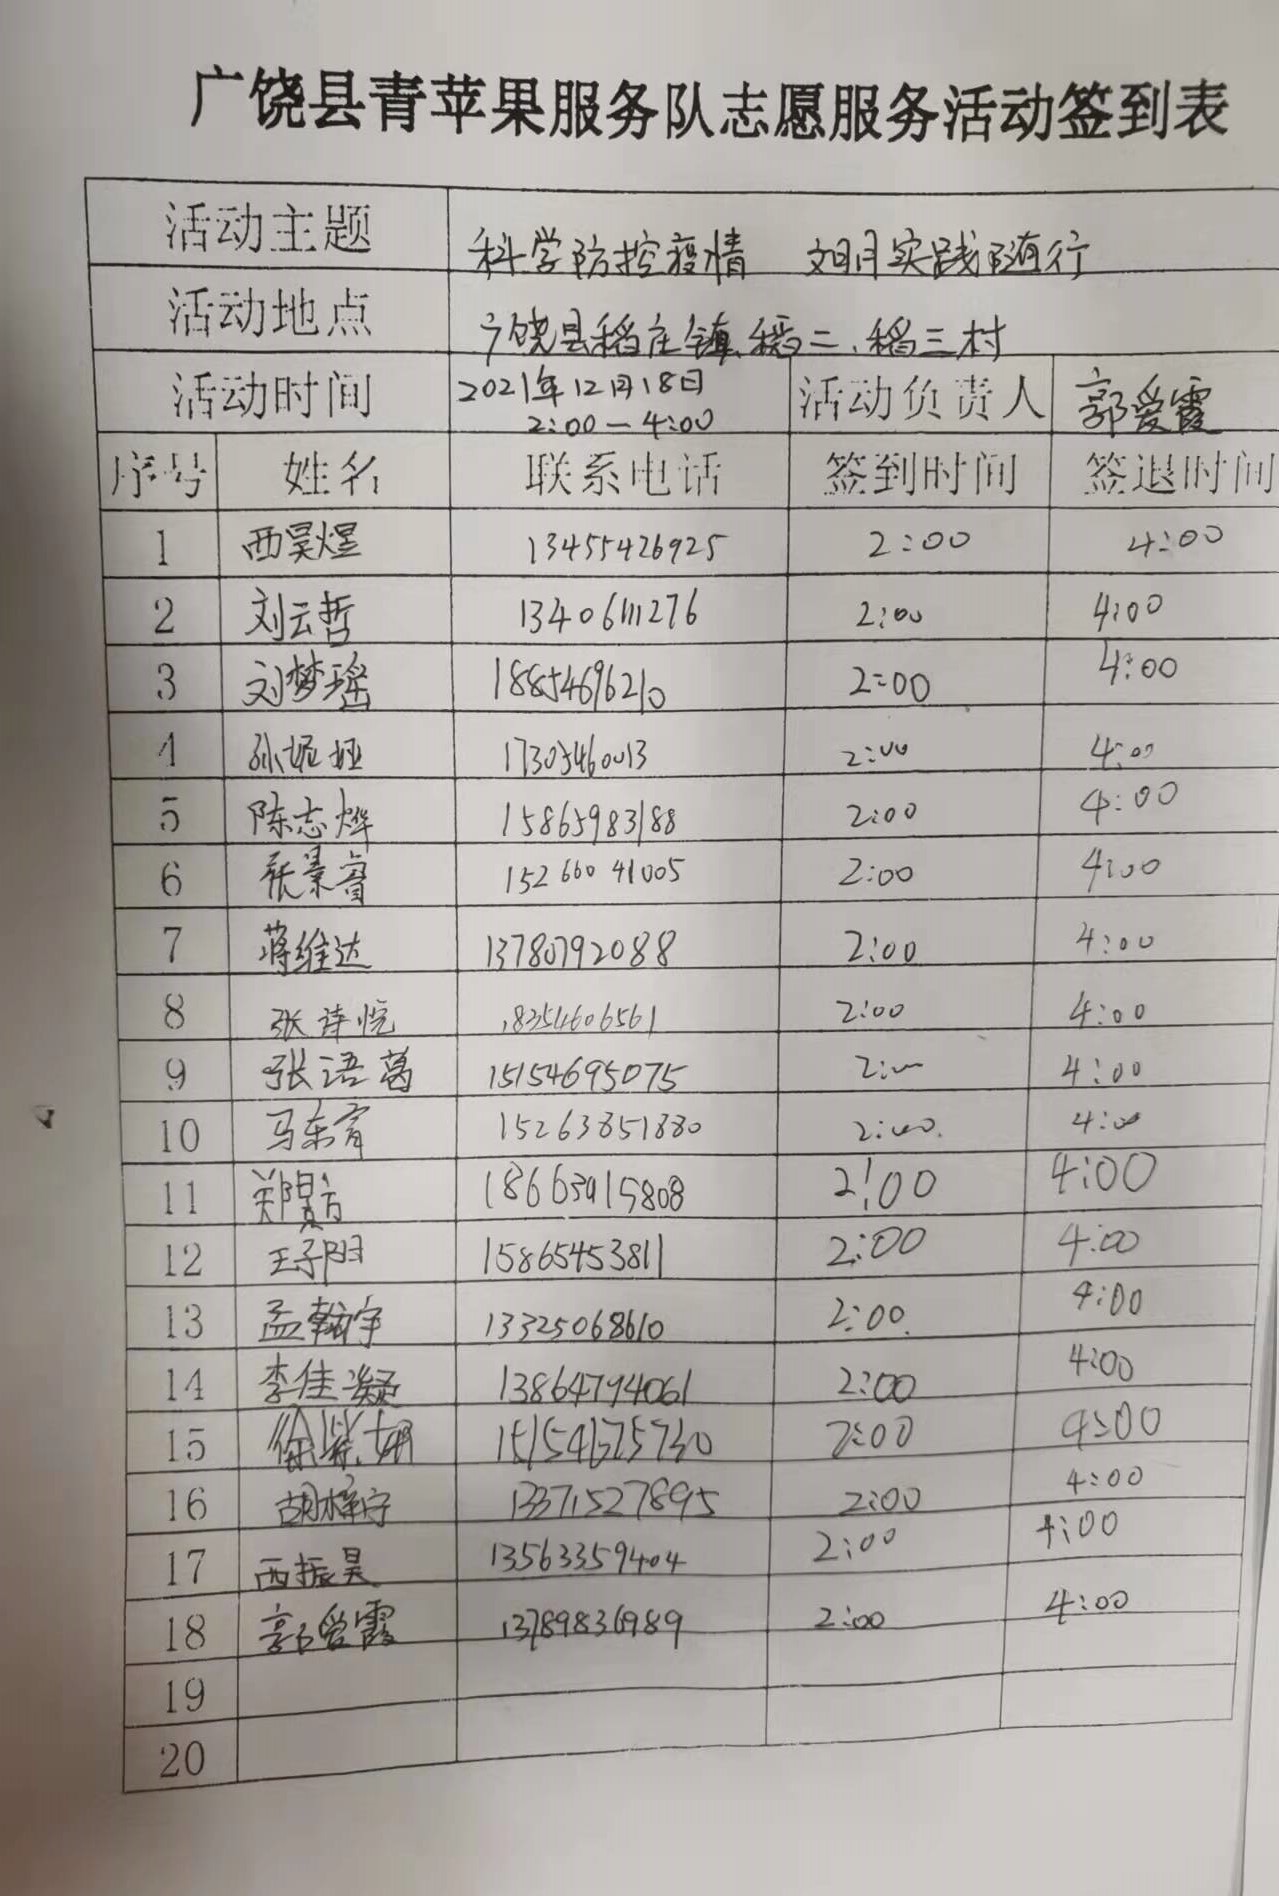 广饶县青苹果服务队志愿服务活动签到表
活动主题 科学防控疫情 文明实践随行
活动地点 广饶县稻庄镇、稻二、稻三村
活动时间 2021年12月18日 2:00—4:00 活动负责人 郭爱霞
序号 姓名 联系电话 签到时间 签退时间
1 西昊煜 13455426925 2:00 4:00
2 刘云哲 13406111276 2:00 4:00
3 刘梦瑶 18854696210 2:00 4:00
4 孙妮娅 17305460013 2:00 4:00
5 陈志烨 15865983188 2:00 4:00
6 张景睿 15266041005 2:00 4:00
7 蒋维达 13780792088 2:00 4:00
8 张诗悦 18354606561 2:00 4:00
9 张语葛 15154695075 2:00 4:00
10 马东育 15263851880 2:00 4:00
11 郑 18663415808 2:00 4:00
12 王子阳 15865453811 2:00 4:00
13 孟翰宇 13325068610 2:00 4:00
14 李佳凝 13864794061 2:00 4:00
15 徐紫妍 15154675730 2:00 4:00
16 胡梓宁 13371527895 2:00 4:00
17 西振昊 13563359404 2:00 4:00
18 郭爱霞 13789836989 2:00 4:00
19
20